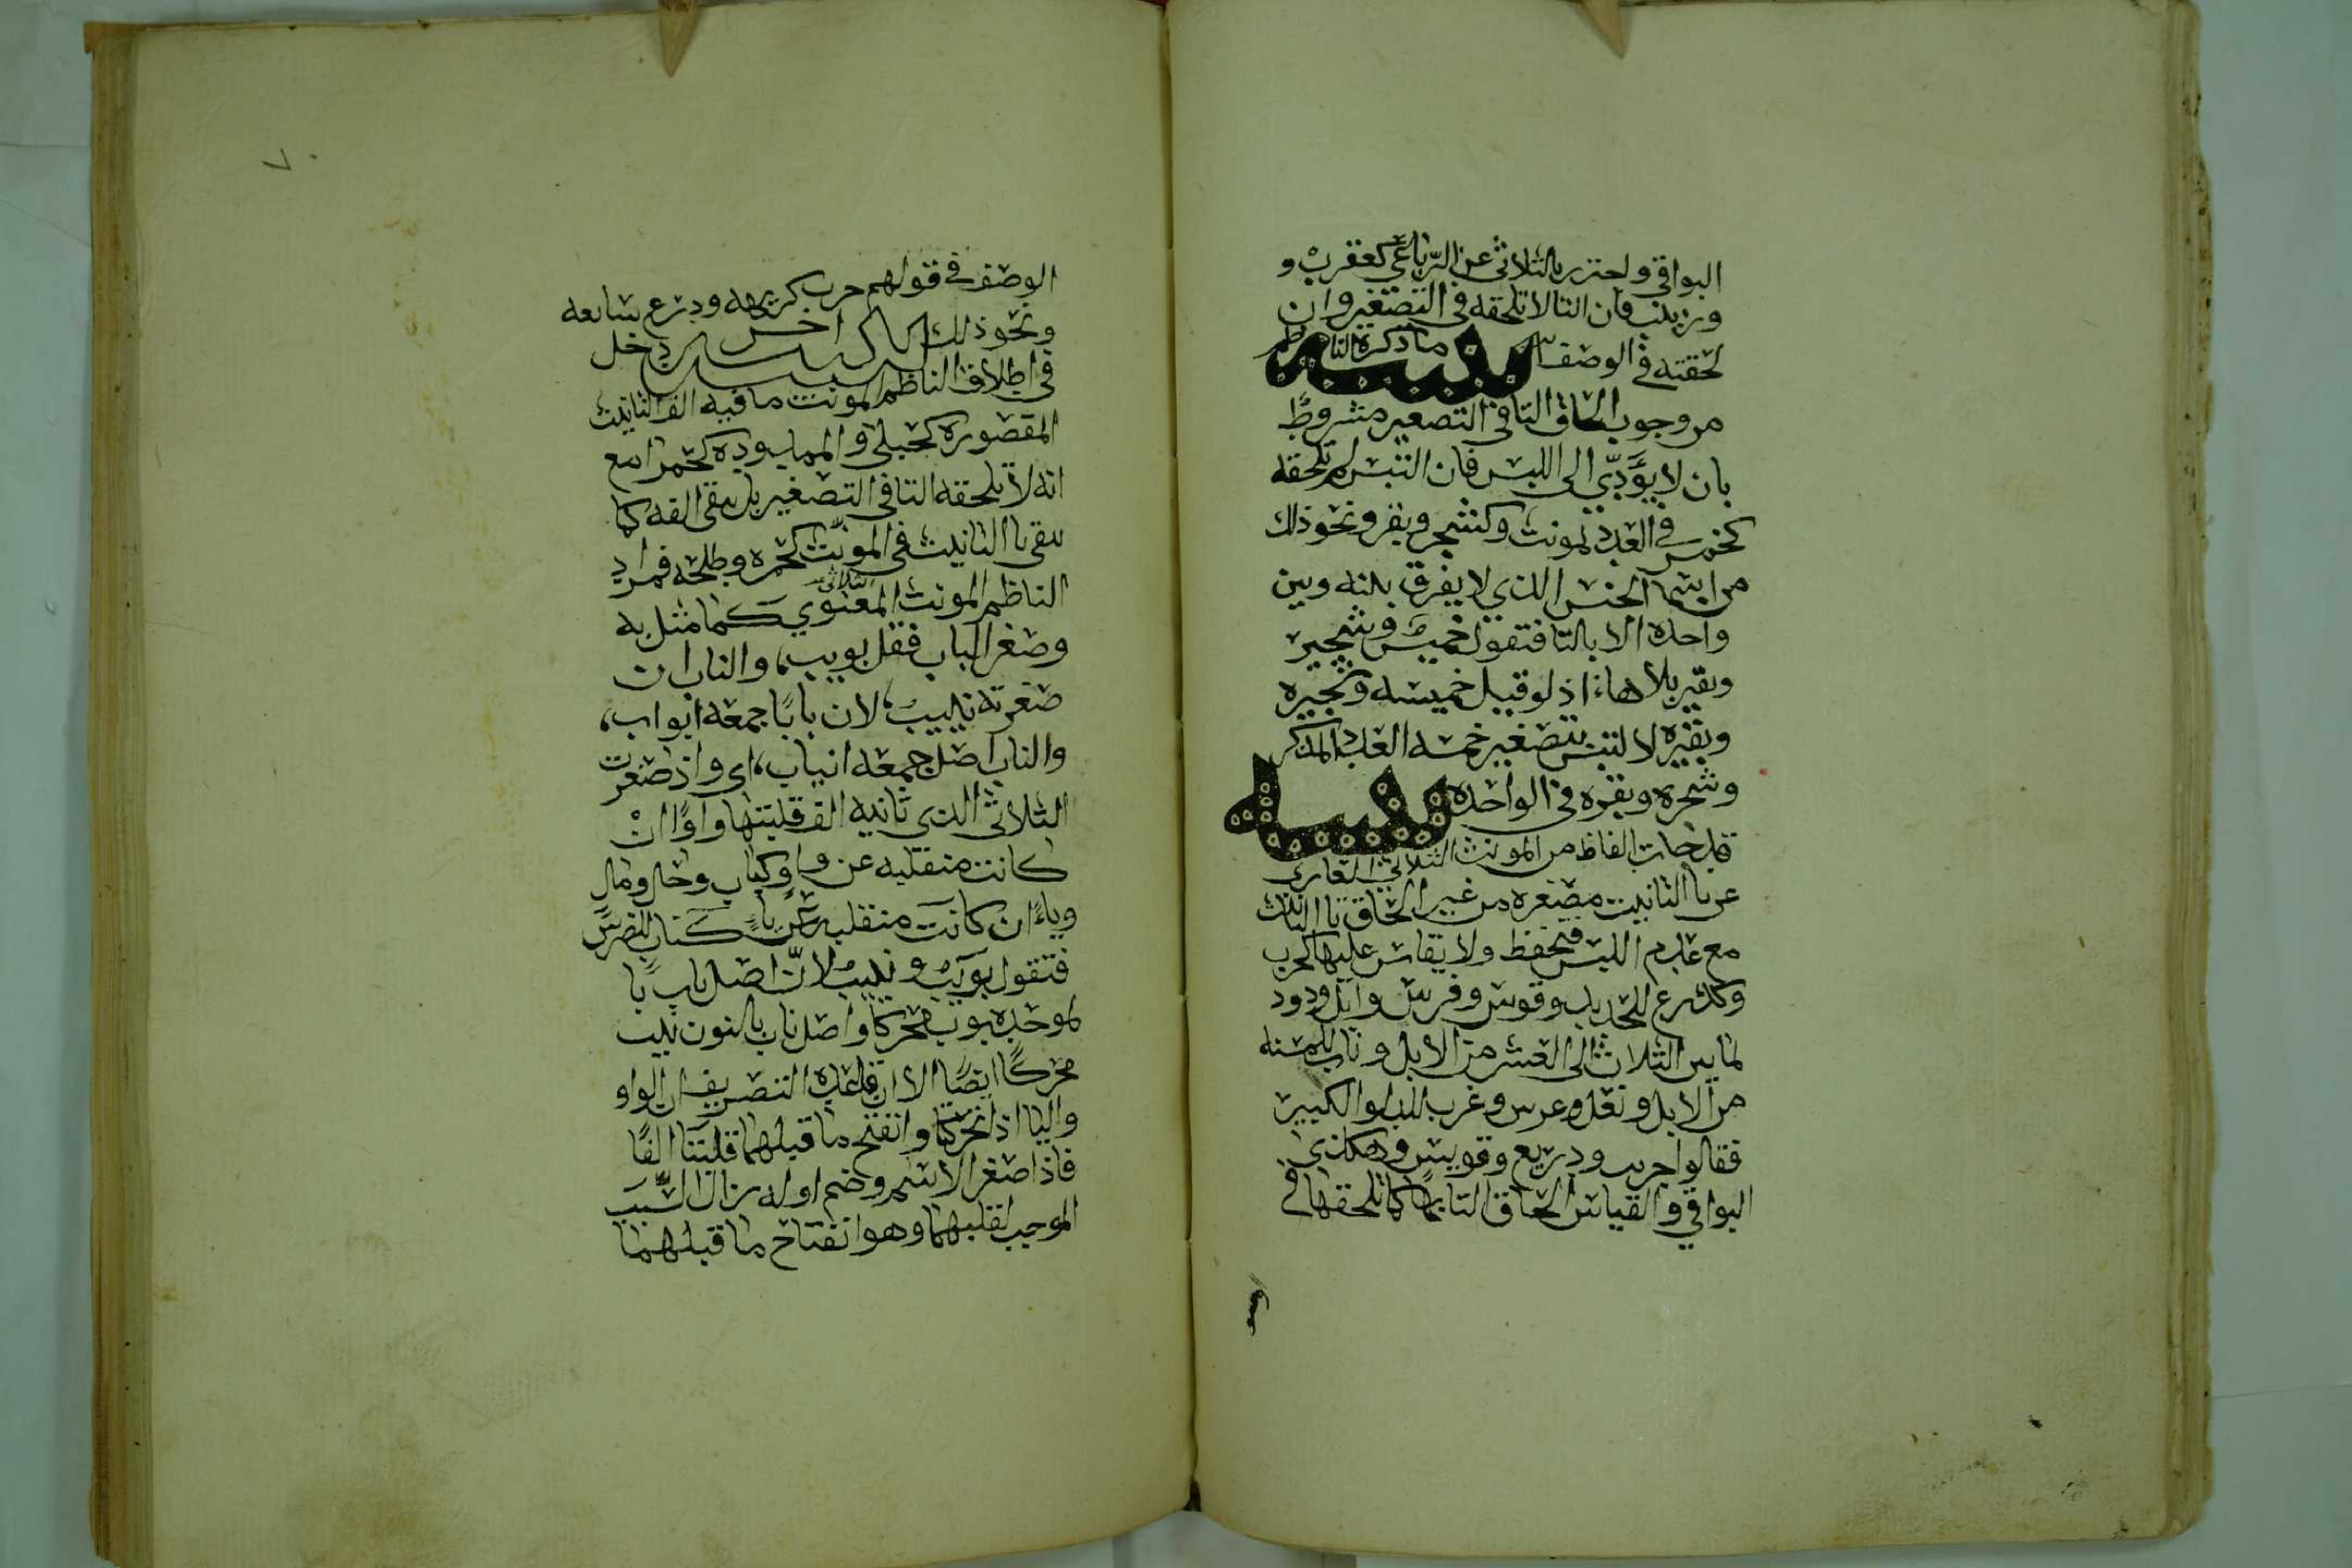 البواقي واحترز بالثلاثي عن الرّباعي كعقرب و
وزينب فان التا لا تلحقه في التصغير وان
لحقته في الوصف تنبيه ما ذكره الناظم
من وجوب الحاق التا في التصغير مشروط
بان لا يؤدّي الى اللبس فان التبس لم تلحقه
كخمس في العدد لمونث وكشجر وبقر ونحو ذلك
من اسما الجنس الذي لا يفرق بينه وبين
واحده الا بالتا فتقول خميس وشجير
وبقير بلا هاء اذ لو قيل خميسه وشجيره
وبقيره لا لتبس بتصغير خمسه العدد المذكر
وشجره وبقره في الواحده تنبيه
قد جات الفاظ من المونث الثلاثي العاري
عن تا التانيث مصغره من غير الحاق تا التانيث
مع عدم اللبس فتحفظ ولا يقاس عليها كحرب
وكدرع للحديد وقوس وفرس وابل وذود
لما بين الثلاث الى العشر من الابل وناب للمسنه
من الابل ونعل وعرس وغرب للدلو الكبير
فقالوا حريب ودريع وقويس وهكذى
البواقي والقياس الحاق التا بها كما تلحقها في
الوصف في قولهم حرب كريهه ودرع سابغه
ونحو ذلك تنبيه اخر دخل
في اطلاق الناظم المونث ما فيه الف التانيث
المقصوره كحبلى والممدوده كحمرا مع
انه لا تلحقه التا في التصغير بل تبقى الفه كما
تبقى تا التانيث في المونث كحمزه وطلحه فمراد
الناظم المونث المعنوي الثلاثي كما مثل به
وصغر الباب فقل بويب، والناب ان
صغرته نييب، لان بابًا جمعه ابواب،
والناب اصل جمعه انياب، اي واذ صغرت
الثلاثي الذي ثانيه الف قلبتها واوًا ان
كانت منقلبه عن واو كباب وحال ومال
وياءً ان كانت منقلبه عن ياءٍ كناب للضرس
فتقول بويب ونييب لانّ اصل باب با
لموحده بوب محركا واصل ناب بالنون نيب
محركًا ايضًا الا ان قاعده التصريف ان الواو
واليا اذا تحركتا وانفتح ما قبلهما قلبتا الفًا
فاذا صغر الاسم وضم اوله زال السّبب
الموجب لقلبهما وهو انفتاح ما قبلهما